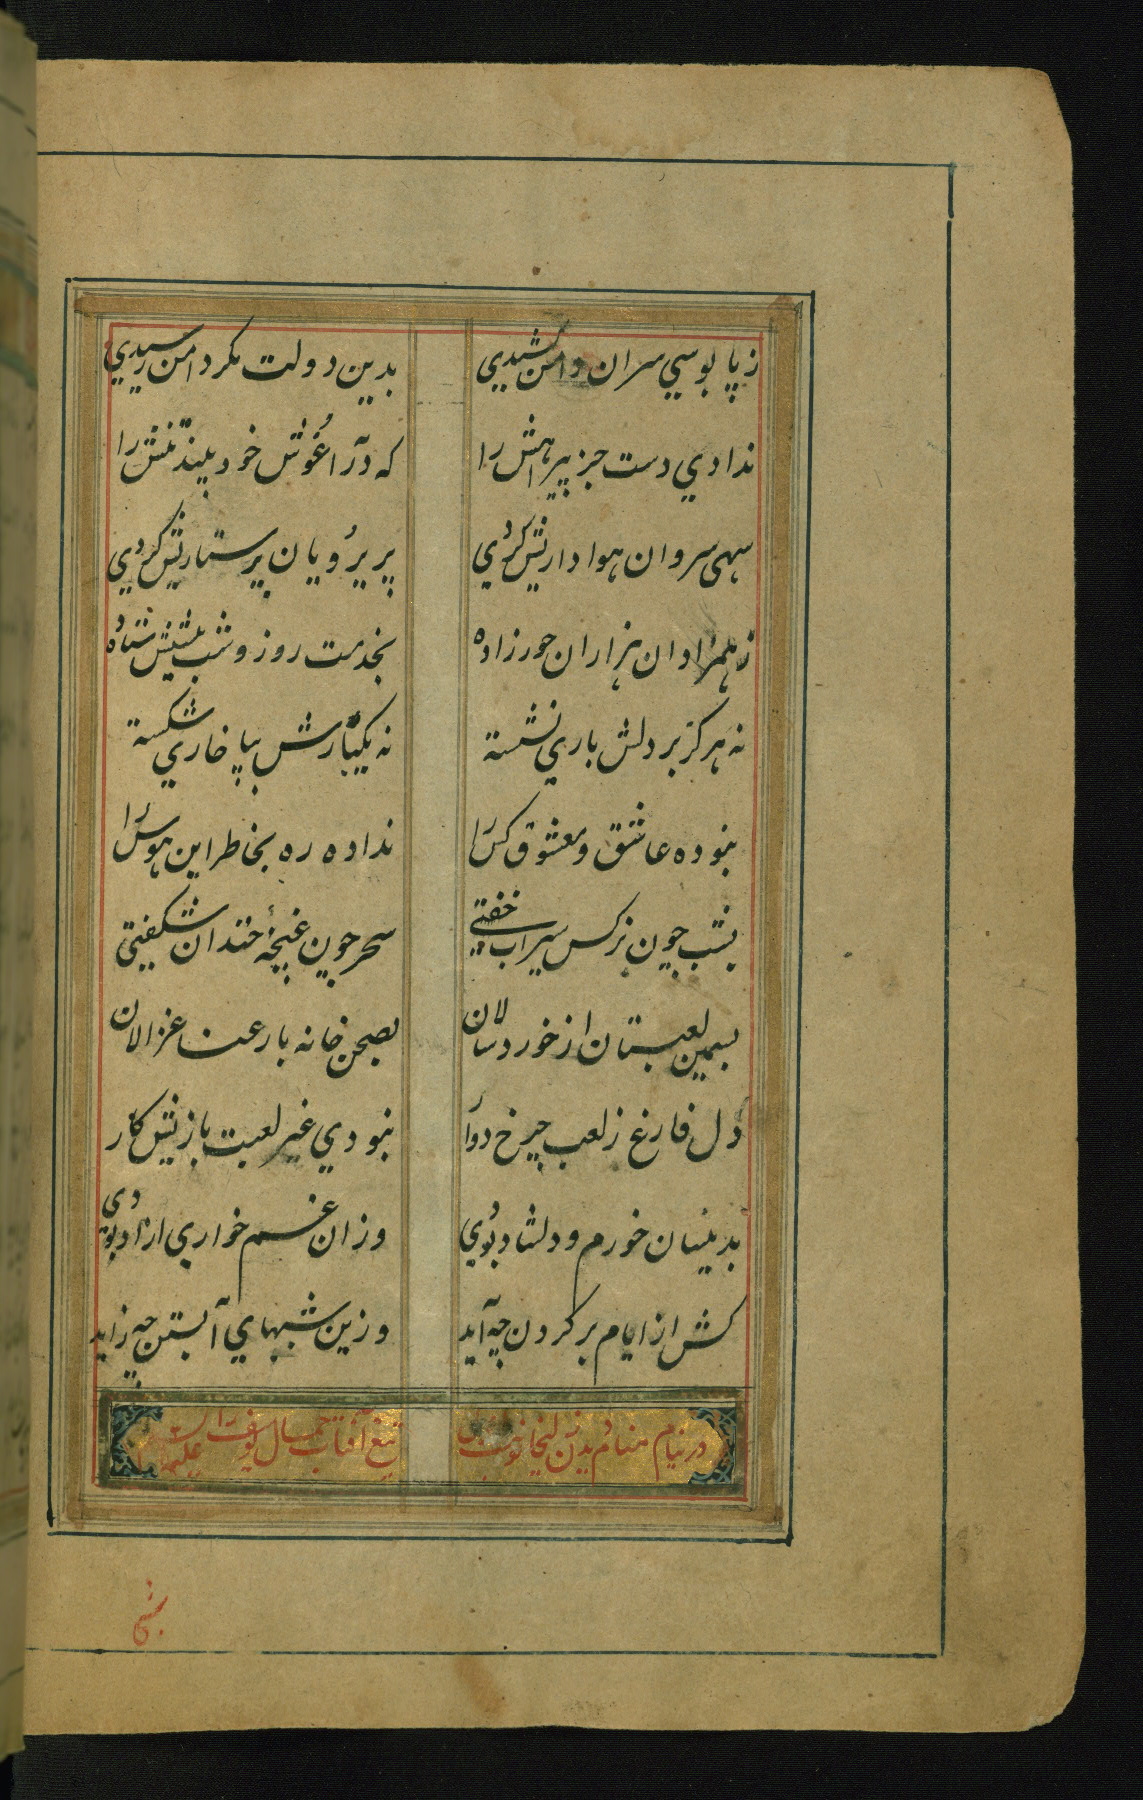 ز پا بوسي سران دامن كشيدي بدين دولت مكر دامن رسيدي
ندادي دست جز پيراهنش را كه در آغوش خود بيند تنش را
سهى سروان هوا داريش كردي پري رويان پرستاريش كردي
ز همزاوان هزاران حور زاده بخدمت روز وشب پيشش ستاده
نه هركز بر دلش باري نشسته نه يكبارش بپا خاري شكسته
نبوده عاشق ومعشوق كس را نداده ره بخاطر اين هوس را
بشب چون نركس سيراب خفتي سحر چون غنچهٔ خندان شكفتي
بسيمين لعبتان از خوردسالان بصحن خانه با رعنا غزالان
دل فارغ ز لعب چرخ دوار نبودي غير لعبت بازيش كار
بدينسان خورم ودلشاد بودي وزان غم خواري ازاد بودي
كش از ايام بر كردن چه آيد وزين شبهاي آبستن چه زايد
در نيام منام ديدن زليخا نوبت تيغ آفتاب جمال يوسف را عليه
بشي